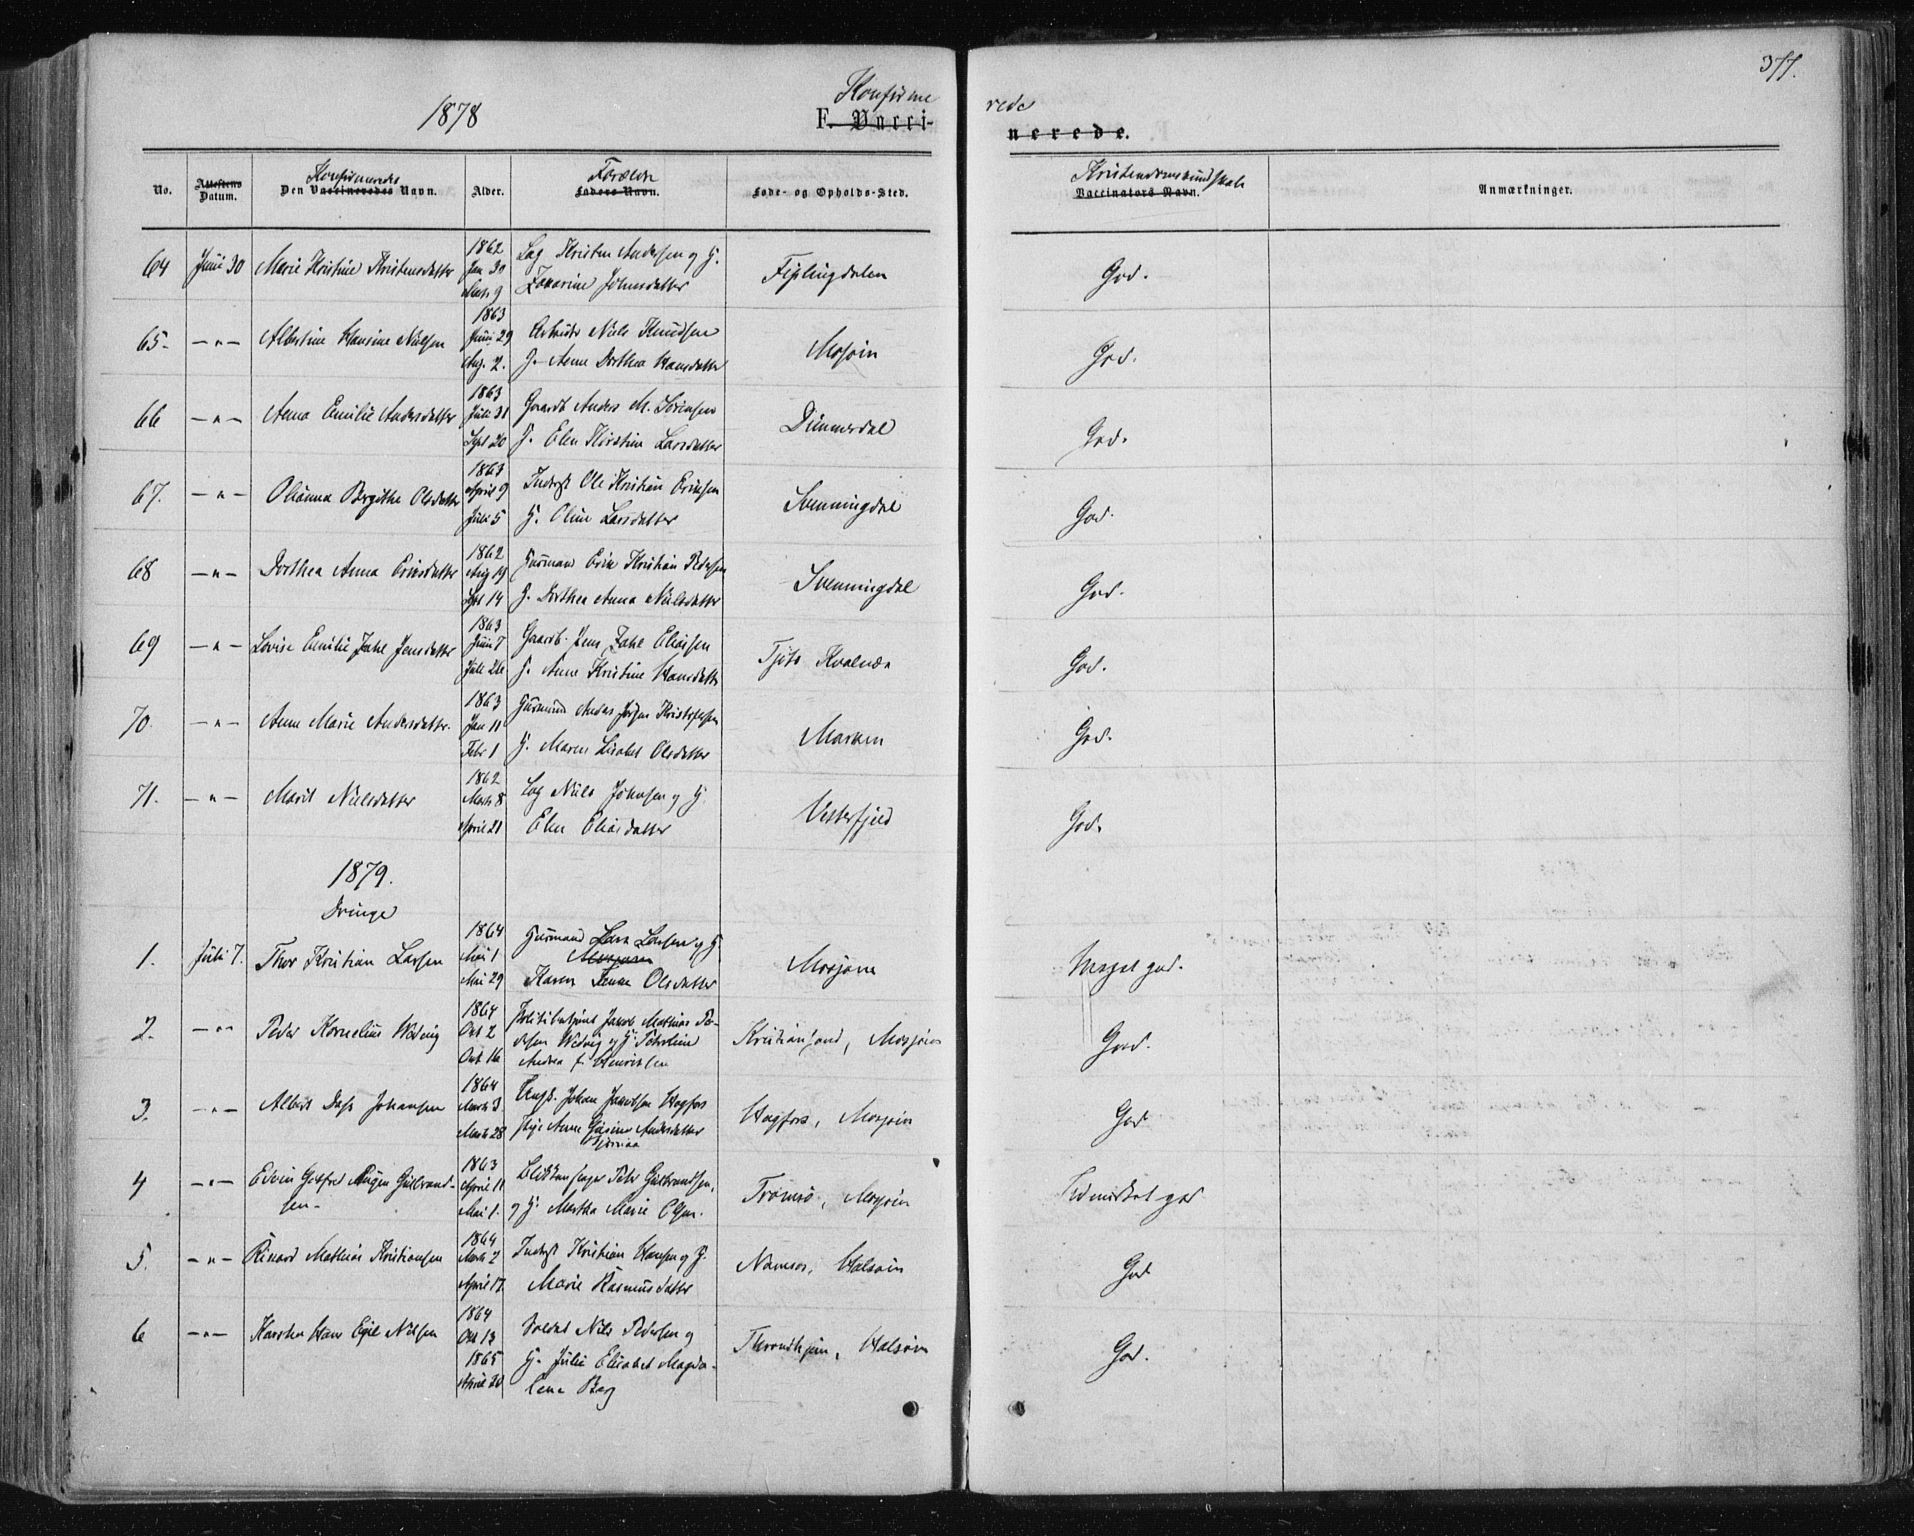 377.
1878
Konfirme
rede
F. Vacci-
nerede.
No.
Attestens
Datum.
Konfirmeredes
Den Vaccineredes Navn.
Alder.
Forældre
Faders Navn.
Føde- og Opholds-Sted.
Kristendomskundskab
Vaccinators Navn.
Anmærkninger.
64 Juni 30 Marie Kristine Kristensdatter 1862 Jan 30 Marts 9 Lap Kristen Andersen og H. Zakarine Johnsdatter Fiplingdalen God.
65. — " — Albertine Hansine Nielsen 1863 Juni 29 Aug. 2. Arbeider Niels Knudsen H. Anne Dorthea Hansdatter Mosjøen God.
66 — " — Anna Emilie Andersdatter 1863 Juli 31 Sept 20 Gaardb Anders M. Sørensen H. Elen Kirstine Larsdatter Dunmerdal God.
67. — " — Olianna Bergithe Olsdatter 1863 April 9 Juli 5 Inderst Ole Kristian Eriksen H. Oline Larsdatter Svenningdal God.
68 — " — Dorthea Anna Eriksdatter 1862 Aug 19 Sept 14 Husmand Erik Kristian Pedersen H. Dorthea Anna Nielsdatter Svenningdal God.
69 — " — Lovise Emilie Zahl Jensdatter 1863 Juni 7 Juli 26 Gaardb. Jens Zahl Eliasen H. Anne Kristine Hansdatter Tjøtø Kvalnæs God.
70. — " — Anne Marie Andersdatter. 1863 Jan 11 Febr 1 Husmand Anders Jørgen Kristofersen H. Maren Lisabet Olsdatter Marken God.
71. — " — Marit Nielsdatter 1862 Marts 8 April 21 Lap Niels Johnsen og H. Elen Eliasdatter Vesterfjeld God.
1879.
Drenge
1. Juli 7. Thor Kristian Larsen 1864 Mai 1 Mai 29 Husmand Lars Larsen og H. Karen Olsdatter Mosjøen Meget god.
2. — " — Peder Kornelius Wedvig 1864 Okt 2 Okt 16 Politibetjent Jakob Mathias Pedersen Wedvig og H. Andrea f. Henriksen Kristiansund, Mosjøen God.
3. — " — Albert Dass Johansen 1864 Marts 3 Marts 28 Ungk. Johan Jakobsen Hagfors Pige Anne Andersdatter Hagfors, Mosjøen God
4 — " — Edvin Gotfred Gulbrandsen 1863 April 11 Mai 1. Peter Gulbrandsen, og H. Martha Marie Olsen. Tromsø, Mosjøen Udmerket god
5. — " — Rikard Mathias Kristiansen 1864 Marts 2 April 17. Inderst Kristian Hansen og H. Marie Rasmusdatter Namsos, Halsøen God
6 — " — Karsten Hans Egil Nilsen 1864 Okt 13 1865 April 30 Soldat Nils Pedersen og H. Julie Elisabet Magdalena Berg Throndhjem, Halsøen God.